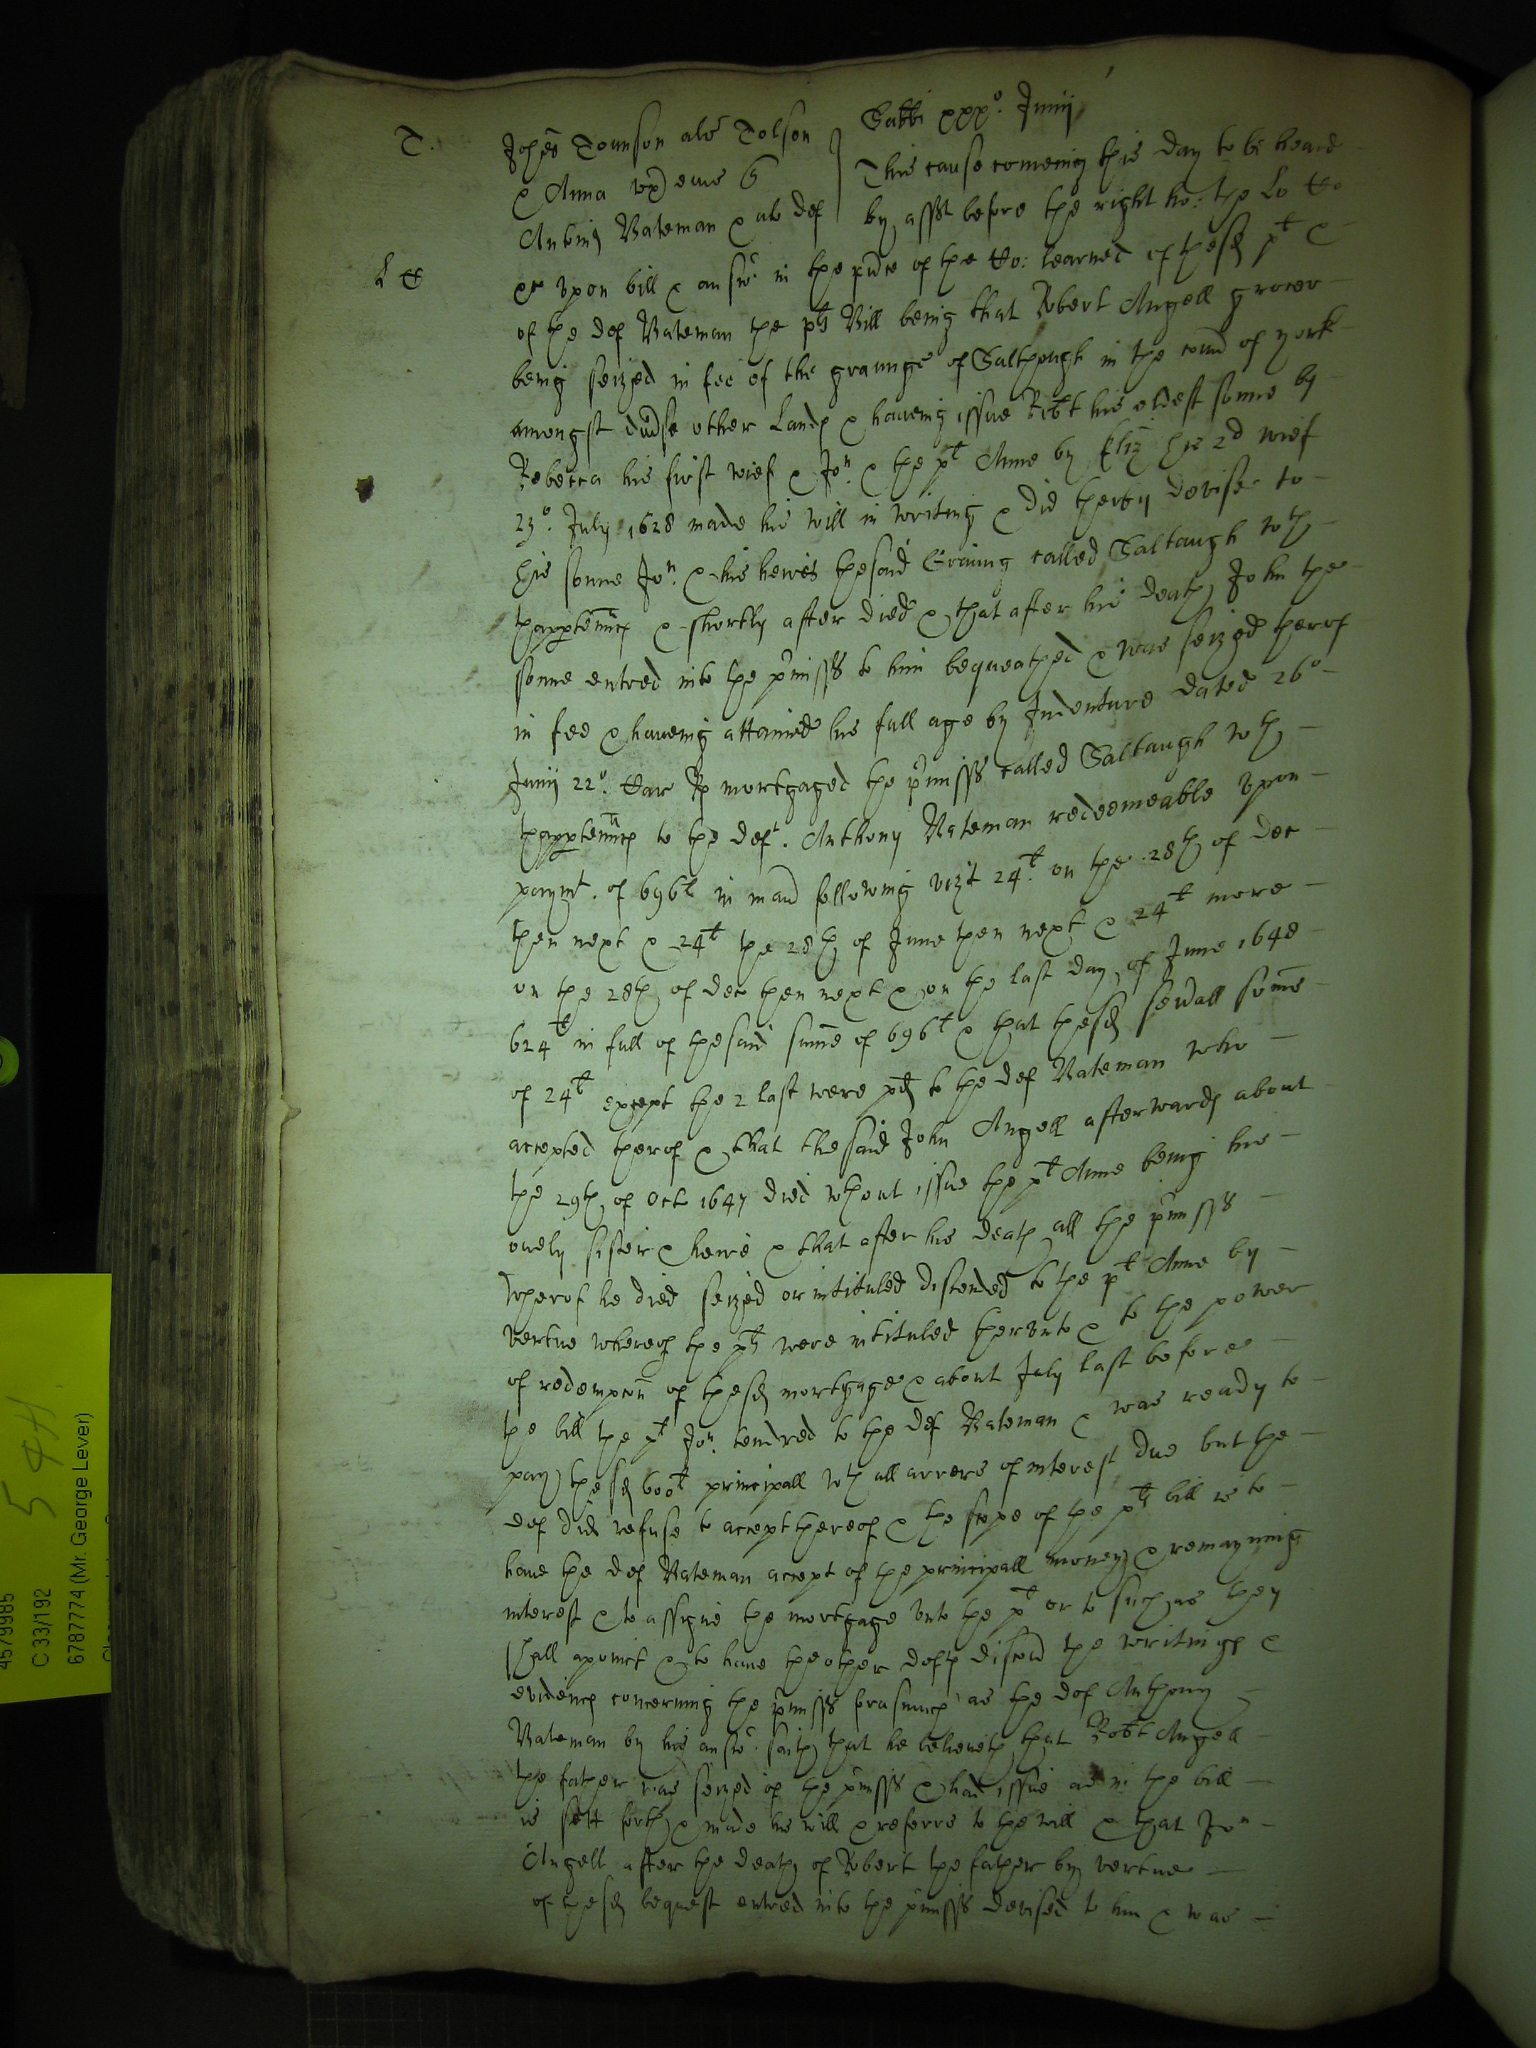 Sabbi xxx° Junij
T.
Johes Tounson als Tolson
& Anna ux) eius
Antoniu Bateman & al def
This cause comeing this day to be heard
by asst before the right ho: the Lo
upon bill & answ in the pnce of the Co: learned of the sd pt &
of the def Bateman the pts Bill being that Robert Angell grocer
being seized in fee of the graunge of Salthaugh in the coun of york
amongst divse other Lands & haveing issue Robt his eldest sonne by
Rebecca his first wief & Jon. & the pt Anne by Eliz his 2d wief
23°. July 1628 made his will in writing & did therby devise to
his sonne Jon. & his heires the said Graung called Saltaugh wth
thapptennces & shortly after died & that after his death John the
sonne entred into the pmisss to him bequeathed & was seized therof
in fee & haveing attained his full age by Indenture dated 26°
Junij 22°. Car Rs mortgaged the pmisss called Saltaugh wth
thapptennces to the deft. Anthony Bateman redeemeable upon
paymt. of 696l in mann following vizt 24l on the 28th of Dec
then next & 24l the 28th of June then next & 24l more
on the 28th of dec then next & on the last day of June 1648
624l in full of the said sume of 696l & that the sd sevall some
of 24l except the 2 last were pd to the def Bateman who
accepted therof & that the said John Angell afterwards about
the 29th of Oct 1647 died wthout issue the pt Anne being his
onely sister & heire & that after his death all the pmisss
wherof he died seized or intituled discended to the pt Anne by
vertue whereof the pts were intituled therunto & to the power
of redempcon of the sd mortgage & about July last before
the bill the pt Jon. tendred to the def Bateman & was ready to
pay the sd 600l principall wth all arrers of interest due but the
def did refuse to accept thereof & the scope of the pts bill is to
have the def Bateman accept of the principall money & remayning
interest & to assigne the mortgage unto the pt or to such as they
shall apoinct & to have the other defts discov the writings &
evidences concerning the pmisss forasmuch as the def Anthony
Bateman by his answ. saith that he beleiveth that Robt Angell
the father was seized of the pmisss & had issue as in the bill
is sett forth & made his will & referrs to the will & that Jon
Angell after the death of Robert the father by vertue
of the sd bequest entred into the pmisss devised to him & was
54H.
4579985
C 33/192
6787774 (Mr. George Lever)